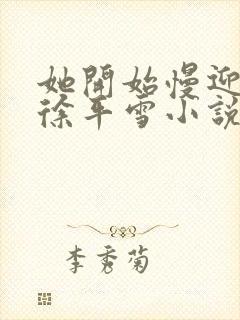 她開始慢迎
徐平雪小說
李秀菊